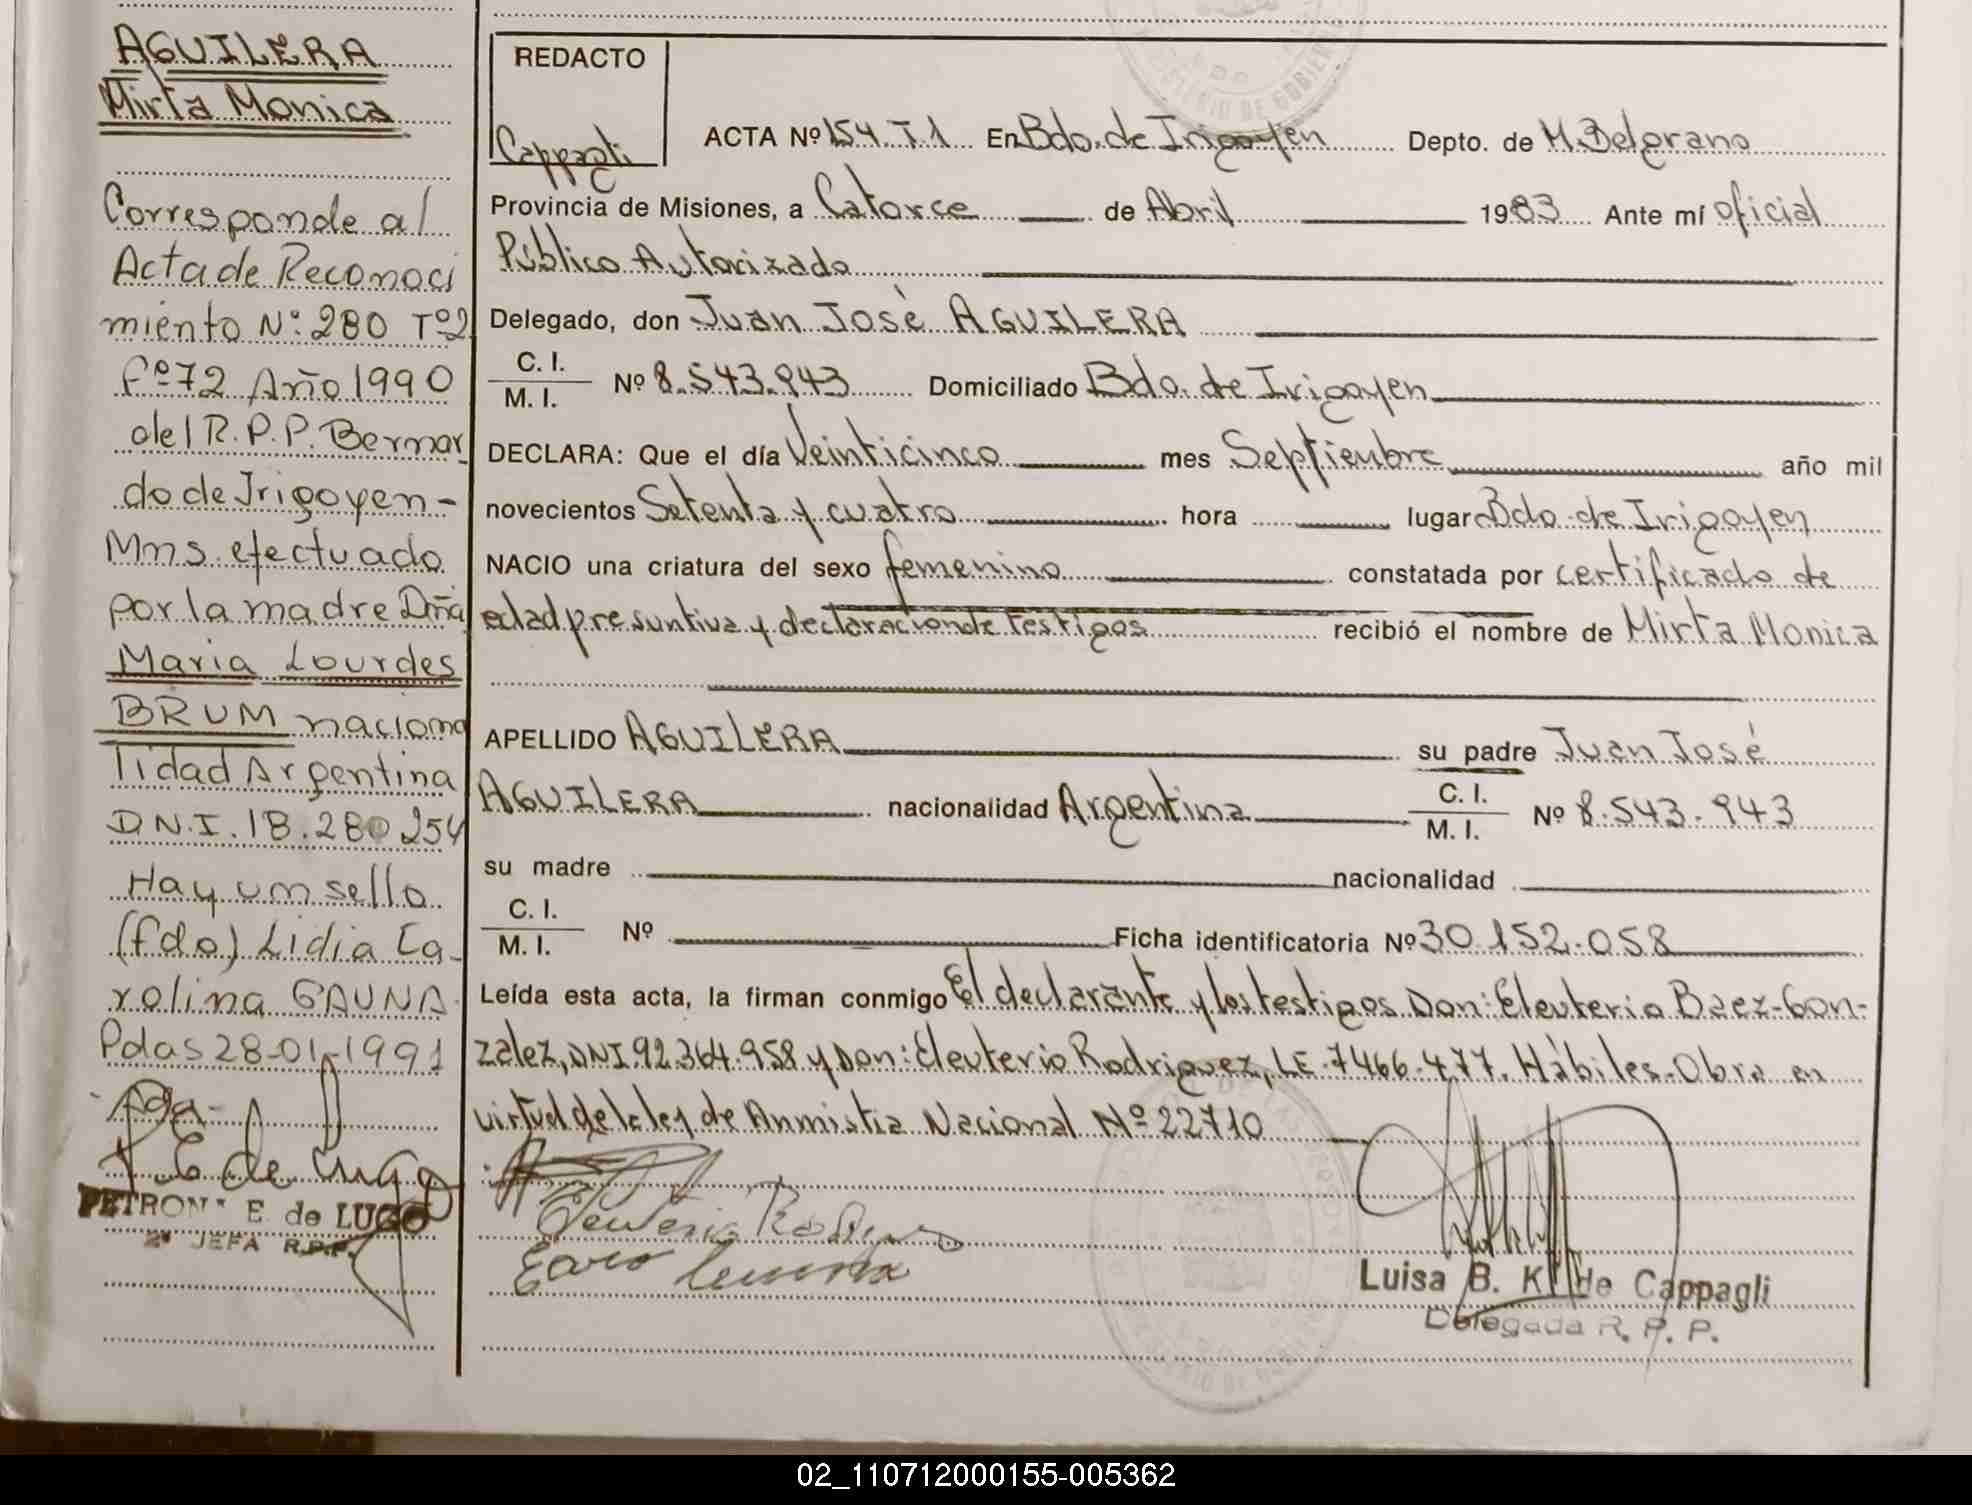 AGUILERA
Mirta Monica
Corresponde al
Acta de Reconoci
miento Nº 280 Tº2
fº72 Año 1990
del R.P.P. Bernar
do de Irigoyen-
Mns. efectuado
por la madre Dña
Maria Lourdes
BRUM naciona
lidad Argentina
D.N.I. 18.280 254
Hay un sello
(fdo) Lidia Ca-
rolina GAUNA
Pdas 28-01-1991
P. E de Lugo
PETRONA E. de LUGO
2ª JEFA R.P.P.
REDACTO
Cappagli
ACTA Nº 154 T.1 En Bdo. de Irigoyen Depto. de M. Belgrano
Provincia de Misiones, a Catorce de Abril 1983 Ante mí oficial
Público Autorizado
Delegado, don Juan José AGUILERA
C. I.
M. I. Nº 8.543.943 Domiciliado Bdo. de Irigoyen
DECLARA: Que el día Veinticinco mes Septiembre año mil
novecientos Setenta y cuatro hora lugar Bdo. de Irigoyen
NACIO una criatura del sexo femenino constatada por certificado de
edad presuntiva y declaracion de testigos recibió el nombre de Mirta Monica
APELLIDO AGUILERA su padre Juan José
AGUILERA nacionalidad Argentina C. I. M. I. Nº 8.543.943
su madre nacionalidad
C. I.
M. I. Nº Ficha identificatoria Nº 30.152.058
Leída esta acta, la firman conmigo El declarante y los testigos Don: Eleuterio Baez-Gon-
zalez, DNI 92.364.958 y Don: Eleuterio Rodriguez, LE. 7466.477. Hábiles-Obra en
virtud de la ley de Anmistia Nacional Nº 22710
Luisa B. K. de Cappagli
Delegada R. P. P.
02_110712000155-005362